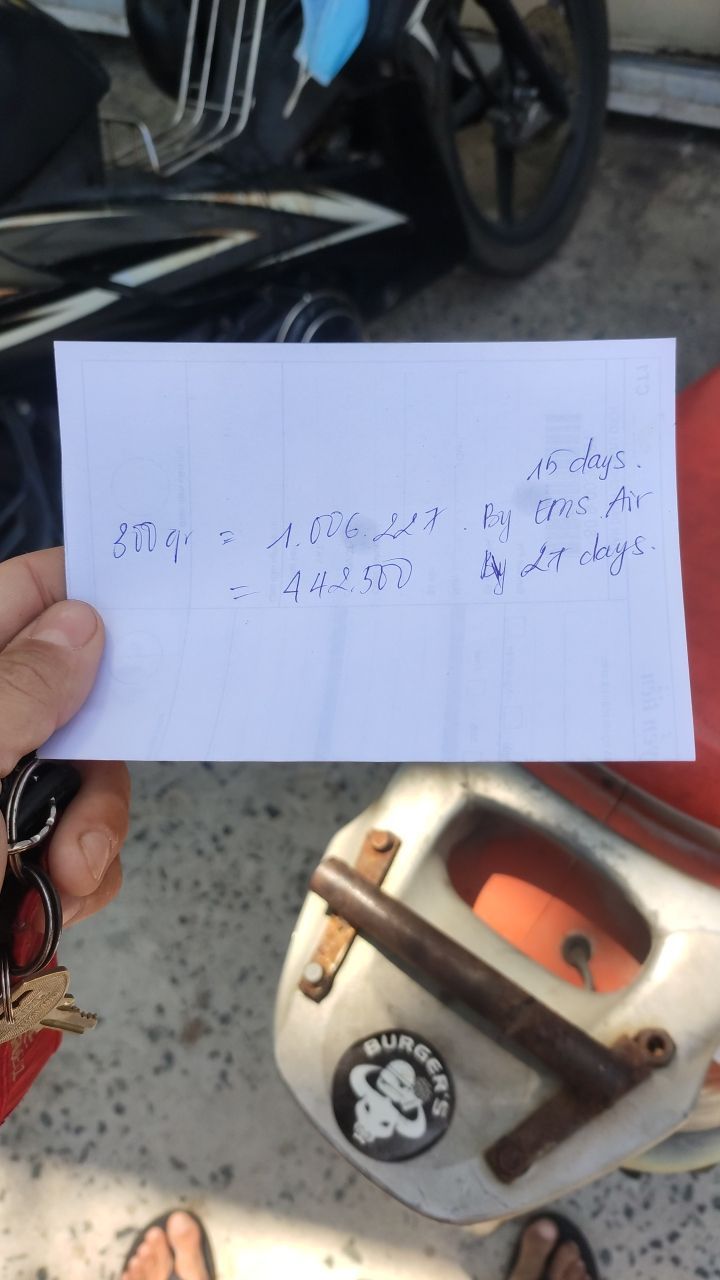 15 days.
800 gr = 1.006.227. By EMS Air
= 442.500 By 27 days.
BURGER'S